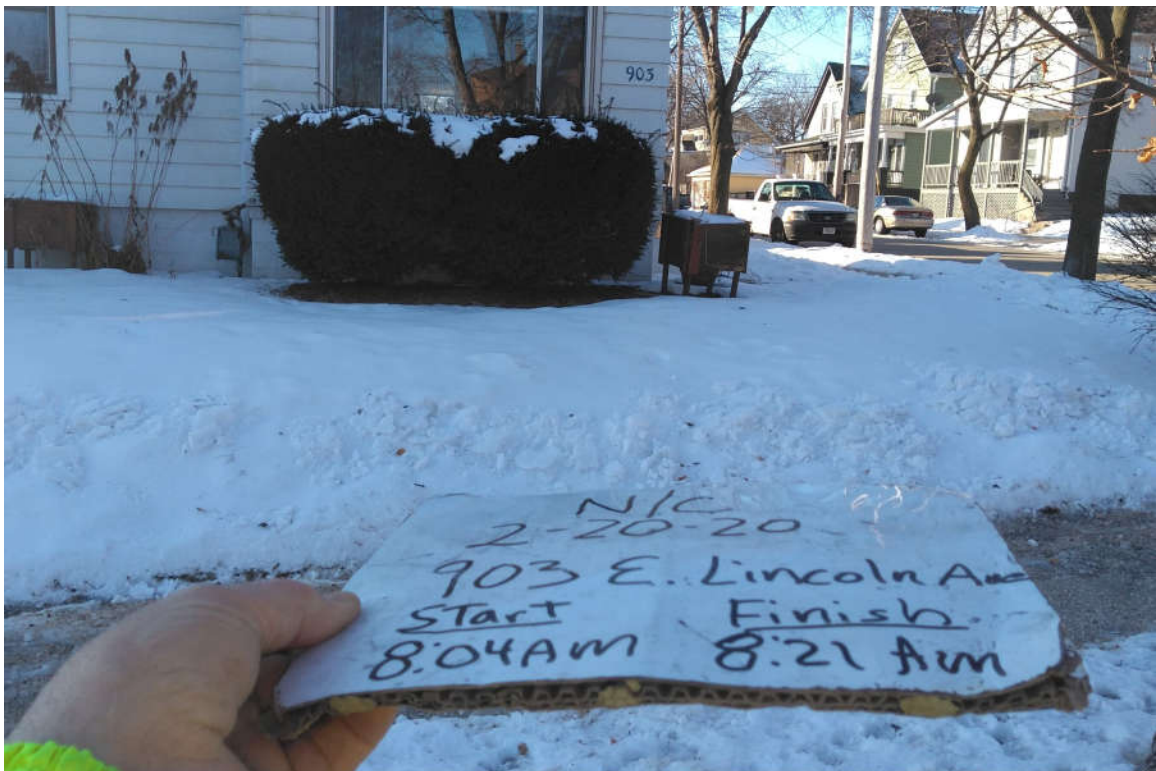 903
N/C
2-20-20
903 E. Lincoln Ave
Start Finish
8:04 Am 8:21 Am